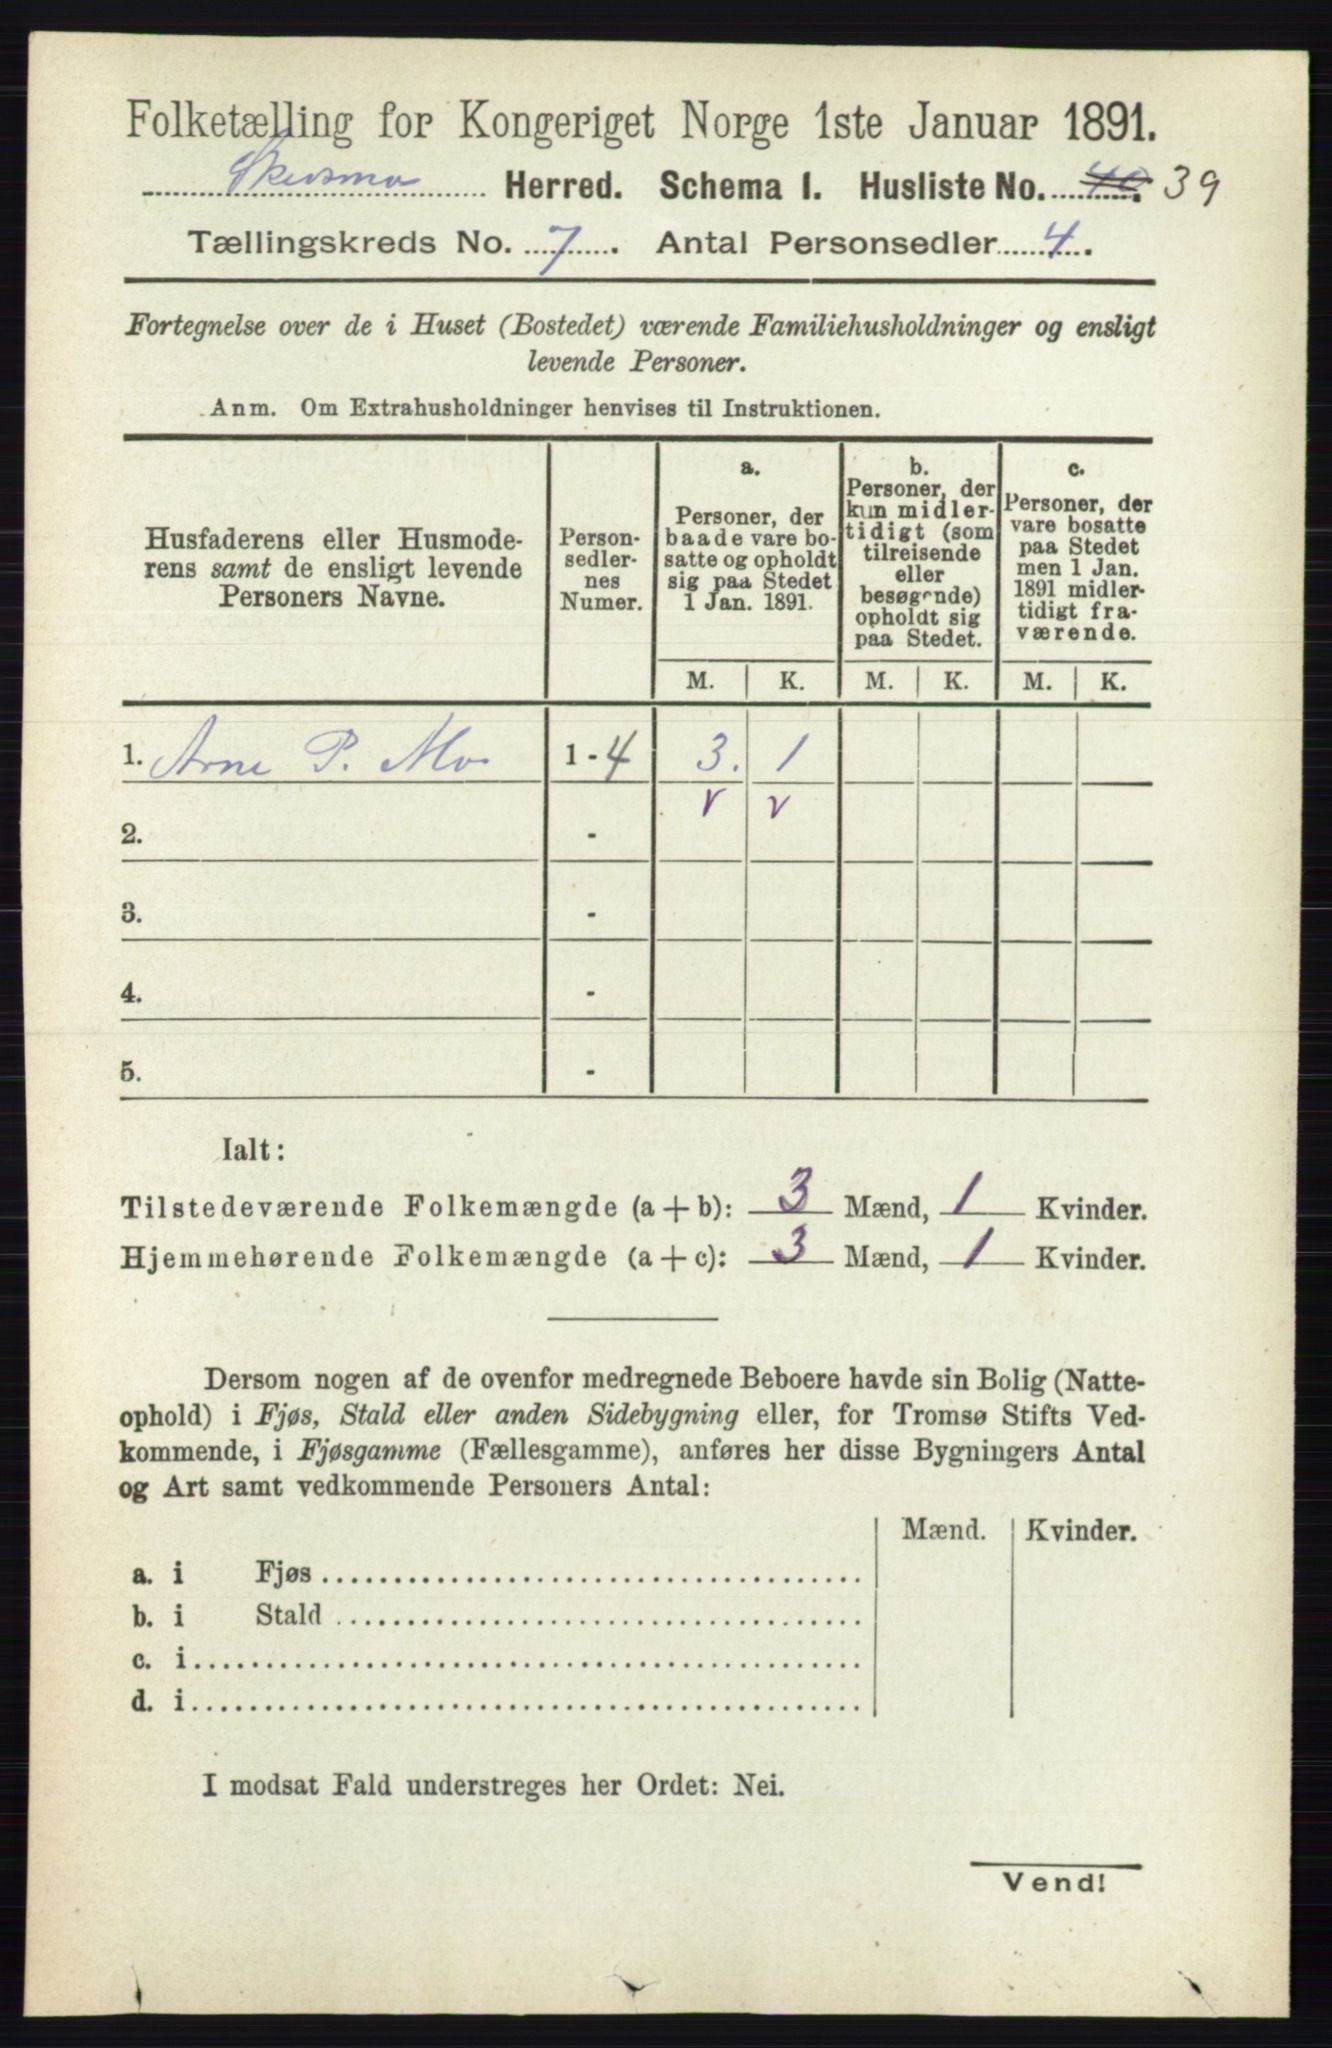 Folketælling for Kongeriget Norge 1ste Januar 1891.
Skedsmo Herred. Schema 1. Husliste No. 40. 39
Tællingskreds No. 7. Antal Personsedler 4.
Fortegnelse over de i Huset (Bostedet) værende Familiehusholdninger og ensligt
levende Personer.
Anm. Om Extrahusholdninger henvises til Instruktionen.
Husfaderens eller Husmode-
rens samt de ensligt levende
Personers Navne.
Person-
sedler-
nes
Numer.
a.
Personer, der
baade vare bo-
satte og opholdt
sig paa Stedet
1 Jan. 1891.
b.
Personer, der
kun midler-
tidigt (som
tilreisende
eller
besøgende)
opholdt sig
paa Stedet.
c.
Personer, der
vare bosatte
paa Stedet
men 1 Jan.
1891 midler-
tidigt fra-
værende.
M. K. M. K. M. K.
1. Arne P. Mo. 1 - 4 3. 1
v v
2. -
3. -
4. -
5. -
Ialt:
Tilstedeværende Folkemængde (a + b): 3 Mænd, 1 Kvinder.
Hjemmehørende Folkemængde (a + c): 3 Mænd, 1 Kvinder.
Dersom nogen af de ovenfor medregnede Beboere havde sin Bolig (Natte-
ophold) i Fjøs, Stald eller anden Sidebygning eller, for Tromsø Stifts Ved-
kommende, i Fjøsgamme (Fællesgamme), anføres her disse Bygningers Antal
og Art samt vedkommende Personers Antal:
Mænd. Kvinder.
a. i Fjøs
b. i Stald
c. i
d. i
I modsat Fald understreges her Ordet: Nei.
Vend!